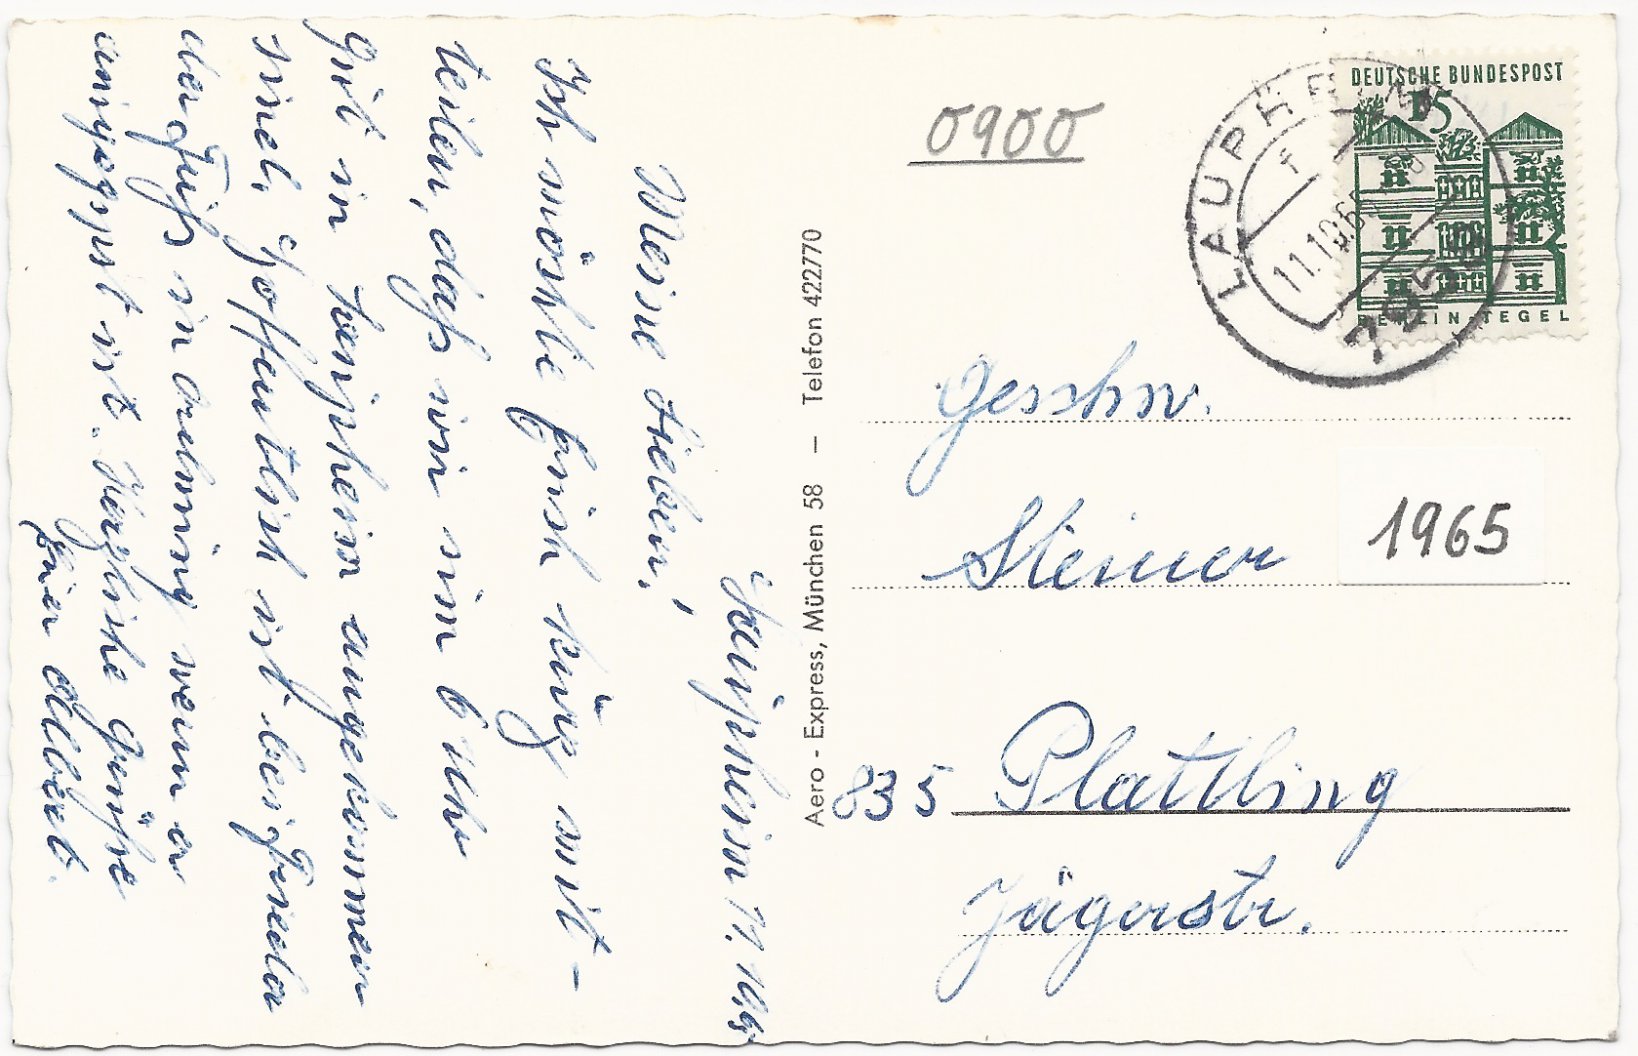 Laupheim 11.10.65
Meine Lieben,
Ich möchte Euch kurz mit-
teilen, daß wir um 6 Uhr
gut in Laupheim angekommen
sind. Hoffentlich ist bei
der Fuß in Ordnung wenn er
ist. Herzliche Grüße
Albert.
Aero - Express, München 58 — Telefon 422770
0900
DEUTSCHE BUNDESPOST
15
BERLIN-TEGEL
LAUPHEIM
11.10.65
795
Geschw.
Steiner
1965
835 Plattling
Jägerstr.